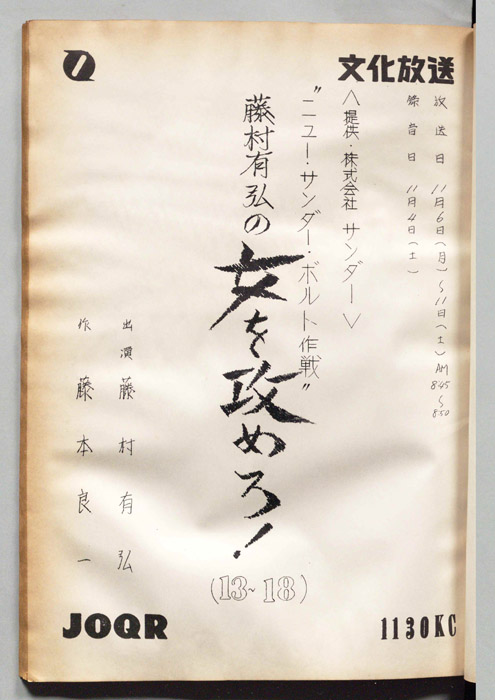 文化放送
放送日 11月6日(月)～11日(土) AM 8:45～8:50
録音日 11月4日(土)
＜提供・株式会社 サンダー＞
"ニュー・サンダー・ボルト作戦"
藤村有弘の女を攻めろ!
(13~18)
出演 藤村有弘
作 藤本良一
JOQR
1130KC